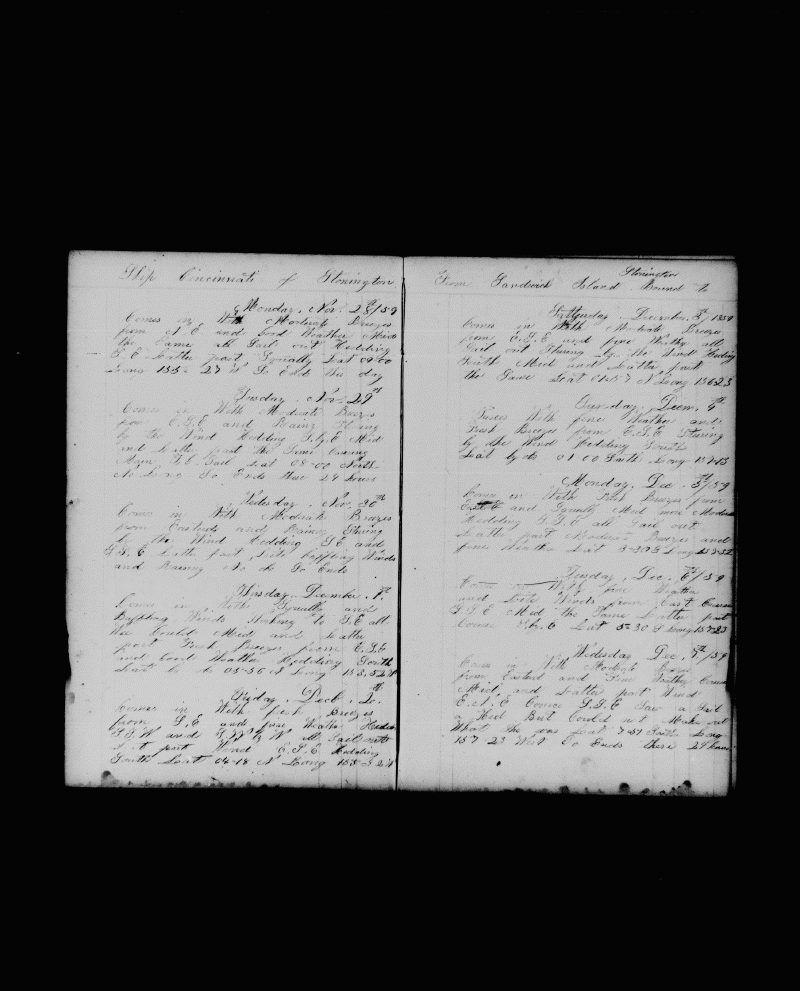 Ship Cincinnati of Stonington
Monday, Nov. 28th/59
Comes in With Moderate Breezes
from N E and Good Weather Mid
the Same all Sail out Hedding
S E Latter part Squally Lat 09-00
Long 155- 27 W So Ends this day
Tusday, Nov. 29th
Comes in With Moderate Breezes
from E.S.E and Rainy
by the Wind Hedding S.b.E Mid
and Latter part the Same
Sail Lat 08-00 North
No Long So Ends these 24 hours
Wedesday, Nov. 30th
Comes in With Moderate Breezes
from Eastords and Rainy Stering
by the Wind Hedding S.E and
S.S.E Latter part Lite baffling Winds
and Raining No So Ends
Thirsday, December, 1st
Comes in With Squally and
Baffling Winds S.E all
Mid and Latter
part Fresh Breezes from E.S.E
and Good Weather Hedding South
Lat 05-56 N Long 155-52 W
Friday, Decb. 2d
Comes in With fresh Breezes
from S.E and fine Weather Hedin
S.S.W and S.W b W all Sail out
Lat part Wind E.S.E Hedding
South Lat 04-18 N Long 155-52 W
Stonington
From Sandwich Island Bound To
Satturday, December, 3d/1859
Comes in With Moderate Breezes
from E.S.E and fine Weather all
Sail out Stering by the Wind Heding
South Mid and Latter part
the Same Lat 01-57 N Long 156-23
Sunday, Decem, 4th
With fine Weather and
Fresh Breezes from E.S.E Stering
by the Wind Hedding South
Lat 01-00 South Long 157-13
Monday, Dec 5th/59
Comes in With Fresh Breezes from
and Squally Mid more Moderate
Hedding S.S.E all Sail out
Latter part Moderate Breezes and
fine Weather Lat 3-30 S Long 157-32
Tusday, Dec, 6th/59
Comes in With fine Weather
and Lite Winds from East Course
S.S.E Mid the Same Latter part
Course Lat 5-30 S Long 157-23
Wedesday Dec, 7th/59
Comes in With Moderate Breezes
from Eastard and Fine Weather Course
Mid, and Latter part Wind
E.N.E Course S.S.E Saw a Sail
But Could not Make out
What She was Lat 7-51 South Long
157-23 West So Ends these 24 hours